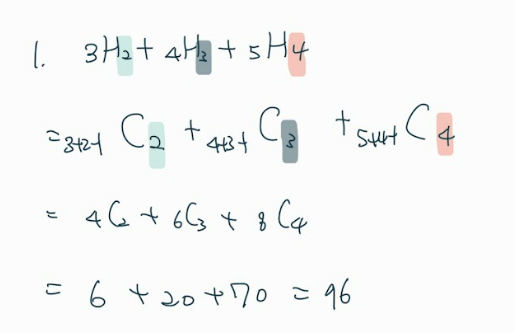 1. 3H2 + 4H3 + 5H4
= 3+2-1 C 2 + 4+3-1 C 3 + 5+4-1 C 4
= 4C2 + 6C3 + 8C4
= 6 + 20 + 70 = 96